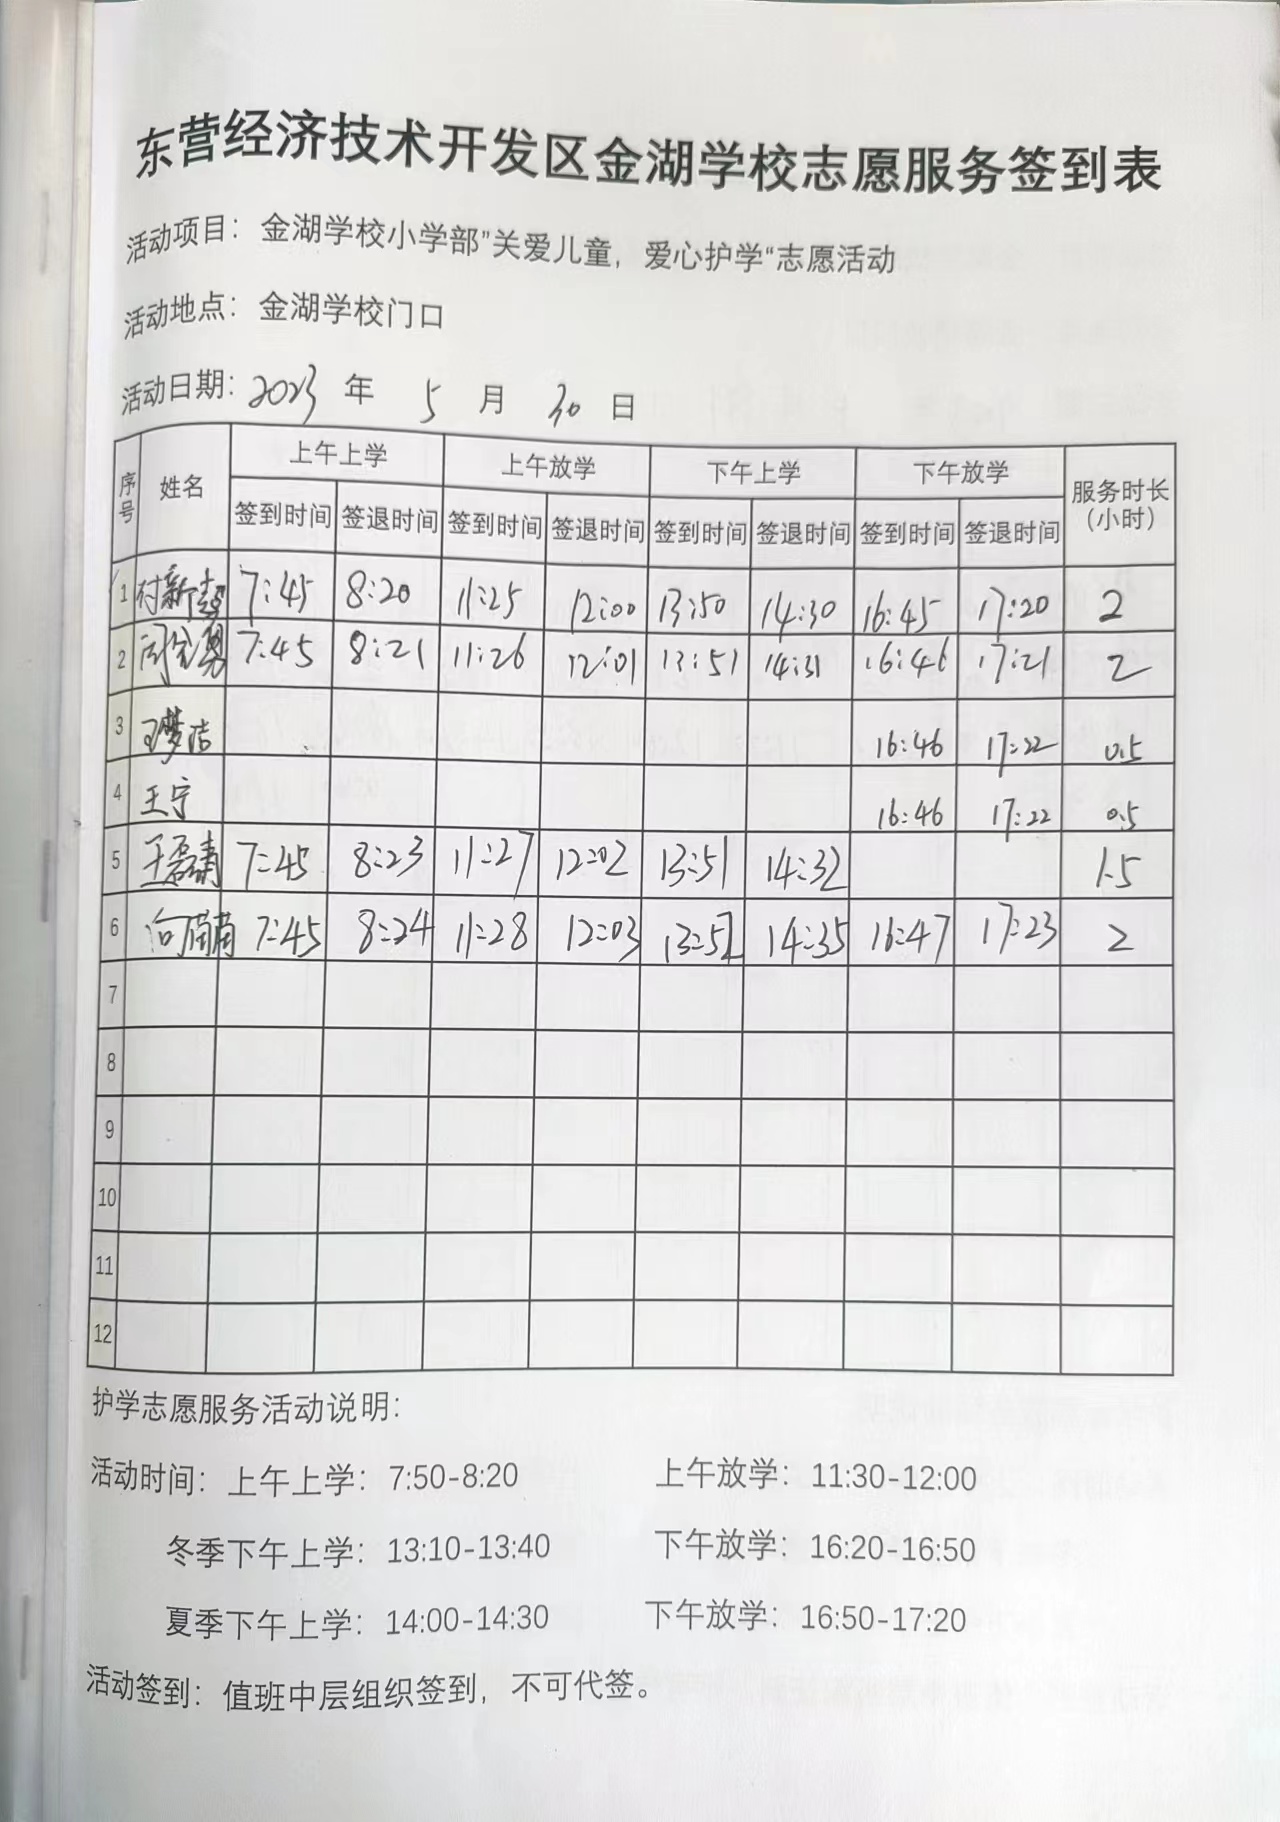 东营经济技术开发区金湖学校志愿服务签到表
活动项目：金湖学校小学部”关爱儿童，爱心护学“志愿活动
活动地点：金湖学校门口
活动日期：2023 年 5 月 30 日
序号 姓名 上午上学 上午放学 下午上学 下午放学 服务时长（小时）
签到时间 签退时间 签到时间 签退时间 签到时间 签退时间 签到时间 签退时间
1 付新 7:45 8:20 11:25 12:00 13:50 14:30 16:45 17:20 2
2 勇 7:45 8:21 11:26 12:01 13:51 14:31 16:46 17:21 2
3 王梦洁 16:46 17:22 0.5
4 王宁 16:46 17:22 0.5
5 王磊 7:45 8:23 11:27 12:02 13:51 14:32 1.5
6 7:45 8:24 11:28 12:03 13:52 14:35 16:47 17:23 2
7
8
9
10
11
12
护学志愿服务活动说明：
活动时间：上午上学：7:50-8:20 上午放学：11:30-12:00
冬季下午上学：13:10-13:40 下午放学：16:20-16:50
夏季下午上学：14:00-14:30 下午放学：16:50-17:20
活动签到：值班中层组织签到，不可代签。